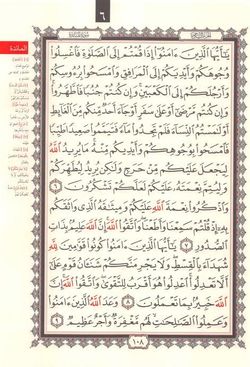 ٦
المائدة
يَٰٓأَيُّهَا ٱلَّذِينَ ءَامَنُوٓا۟ إِذَا قُمْتُمْ إِلَى ٱلصَّلَوٰةِ فَٱغْسِلُوا۟
وُجُوهَكُمْ وَأَيْدِيَكُمْ إِلَى ٱلْمَرَافِقِ وَٱمْسَحُوا۟ بِرُءُوسِكُمْ
وَأَرْجُلَكُمْ إِلَى ٱلْكَعْبَيْنِ وَإِن كُنتُمْ جُنُبًا فَٱطَّهَّرُوا۟
وَإِن كُنتُم مَّرْضَىٰٓ أَوْ عَلَىٰ سَفَرٍ أَوْ جَآءَ أَحَدٌ مِّنكُم مِّنَ ٱلْغَآئِطِ
أَوْ لَٰمَسْتُمُ ٱلنِّسَآءَ فَلَمْ تَجِدُوا۟ مَآءً فَتَيَمَّمُوا۟ صَعِيدًا طَيِّبًا
فَٱمْسَحُوا۟ بِوُجُوهِكُمْ وَأَيْدِيكُم مِّنْهُ مَا يُرِيدُ ٱللَّهُ
لِيَجْعَلَ عَلَيْكُم مِّنْ حَرَجٍ وَلَٰكِن يُرِيدُ لِيُطَهِّرَكُمْ
وَلِيُتِمَّ نِعْمَتَهُۥ عَلَيْكُمْ لَعَلَّكُمْ تَشْكُرُونَ ٦
وَٱذْكُرُوا۟ نِعْمَةَ ٱللَّهِ عَلَيْكُمْ وَمِيثَٰقَهُ ٱلَّذِى وَاثَقَكُم
بِهِۦٓ إِذْ قُلْتُمْ سَمِعْنَا وَأَطَعْنَا وَٱتَّقُوا۟ ٱللَّهَ إِنَّ ٱللَّهَ عَلِيمٌۢ بِذَاتِ
ٱلصُّدُورِ ٧ يَٰٓأَيُّهَا ٱلَّذِينَ ءَامَنُوا۟ كُونُوا۟ قَوَّٰمِينَ لِلَّهِ
شُهَدَآءَ بِٱلْقِسْطِ وَلَا يَجْرِمَنَّكُمْ شَنَـَٔانُ قَوْمٍ عَلَىٰٓ
أَلَّا تَعْدِلُوا۟ ٱعْدِلُوا۟ هُوَ أَقْرَبُ لِلتَّقْوَىٰ وَٱتَّقُوا۟ ٱللَّهَ إِنَّ
ٱللَّهَ خَبِيرٌۢ بِمَا تَعْمَلُونَ ٨ وَعَدَ ٱللَّهُ ٱلَّذِينَ ءَامَنُوا۟
وَعَمِلُوا۟ ٱلصَّٰلِحَٰتِ لَهُم مَّغْفِرَةٌ وَأَجْرٌ عَظِيمٌ ٩
١٠٨